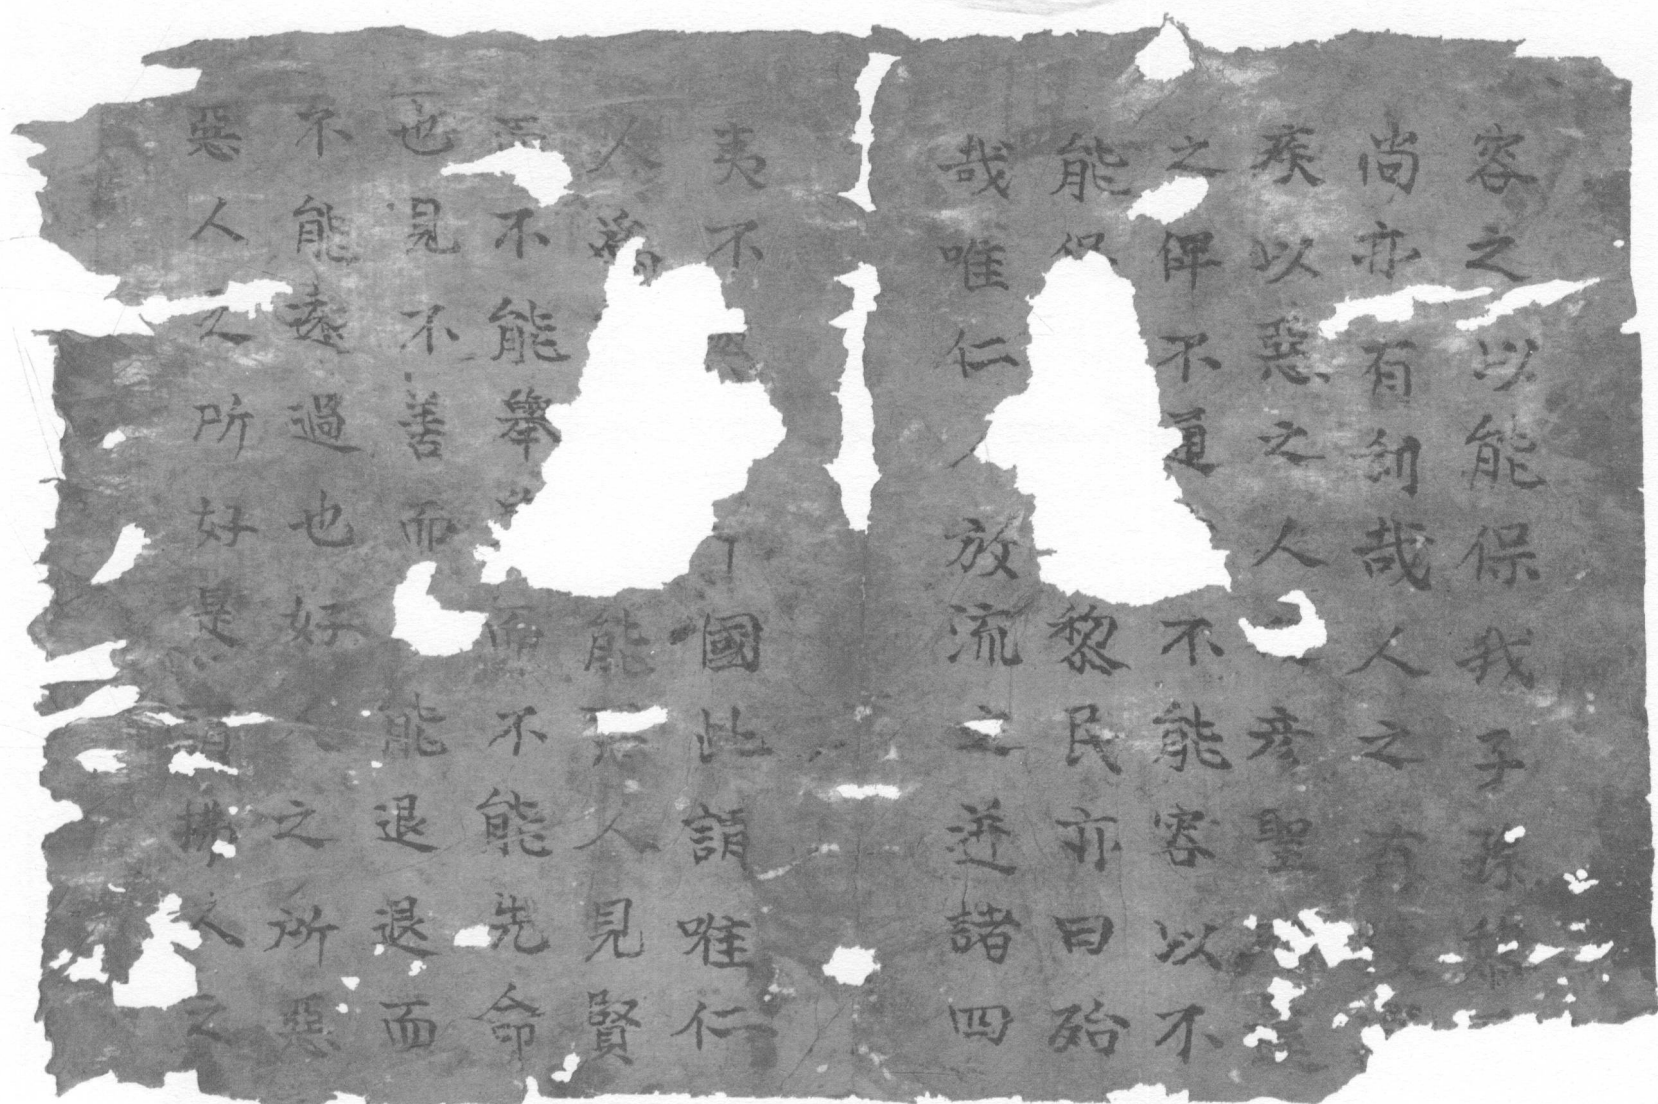 容之以能保我子孫黎
尚亦有利哉人之有
疾以惡之人彦聖
之俾不通不能容以不
能保黎民亦曰殆
哉唯仁人放流之迸諸四
夷不國此謂唯仁
人爲能惡人見賢
而不能舉舉而不能先命
也見不善而能退退而
不能遠過也好之所惡
惡人之所好是謂拂人之